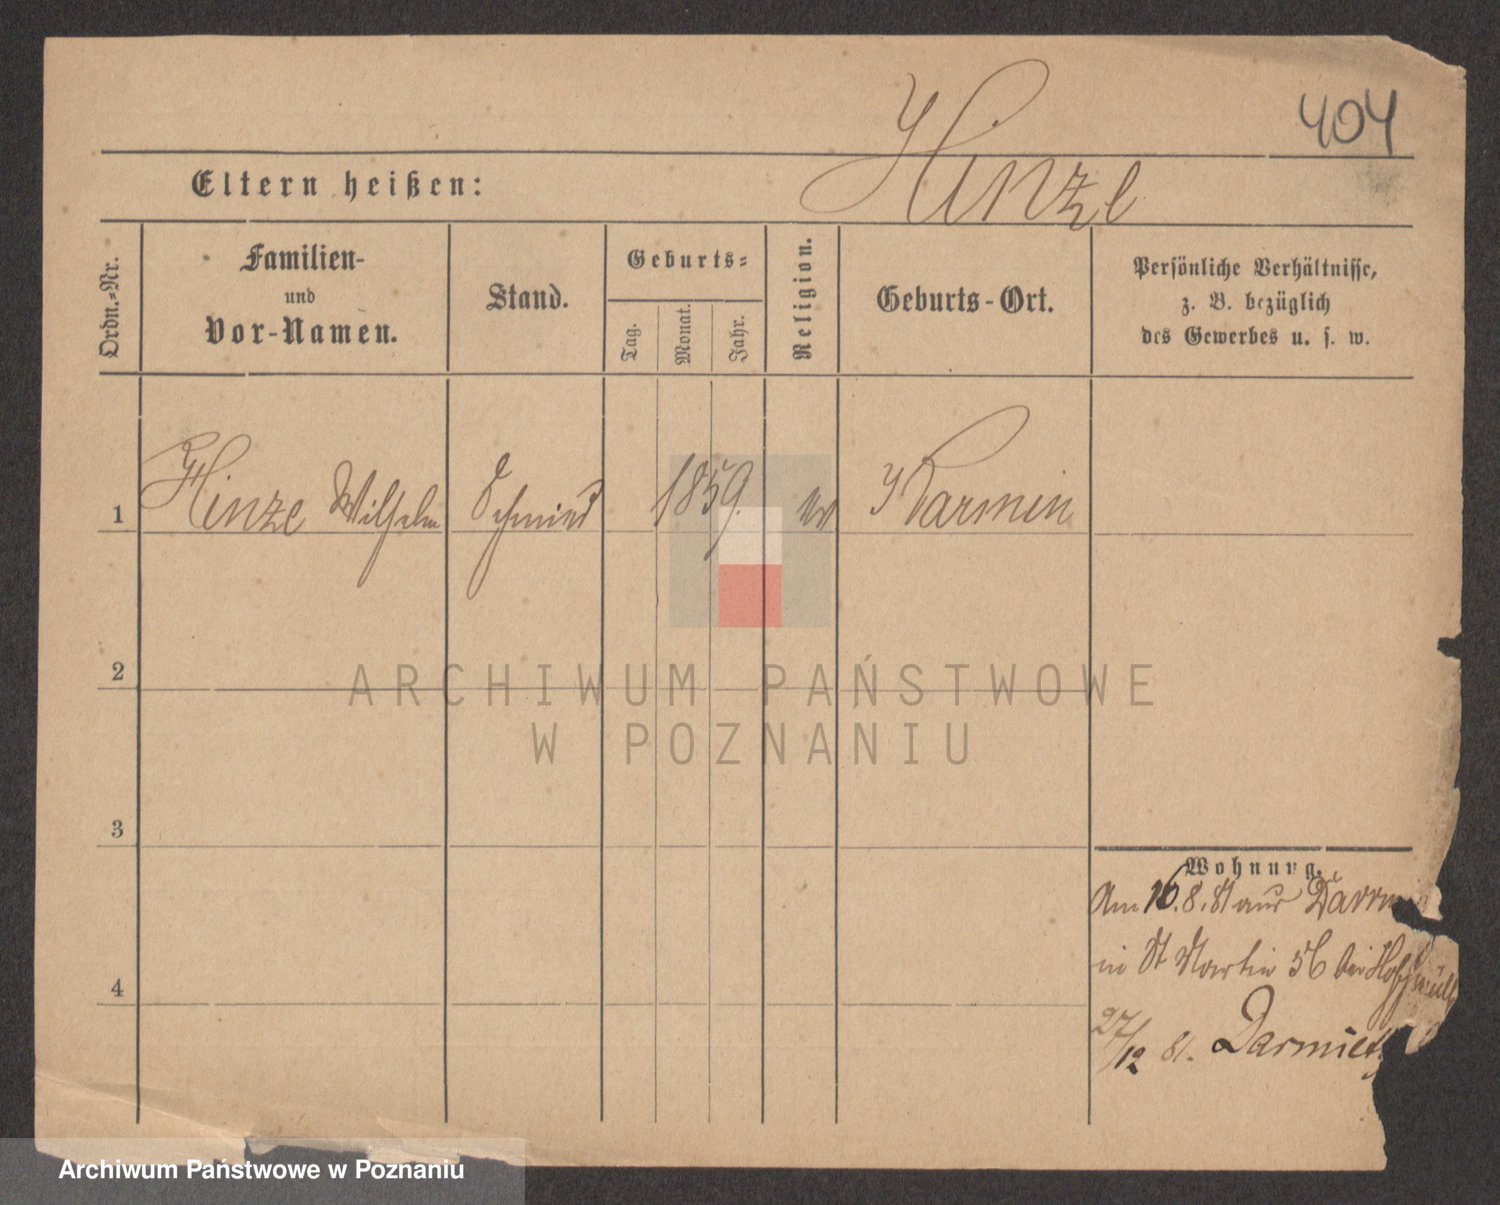 404
Hinze
Eltern heißen:
Ordn.-Nr.
Familien-
und
Vor-Namen.
Stand.
Geburts-
Tag.
Monat.
Jahr.
Religion.
Geburts-Ort.
Persönliche Verhältnisse,
z. B. bezüglich
des Gewerbes u. s. w.
1 Hinze Wilhelm Schmied 1859. ev Darmin
2
ARCHIWUM PAŃSTWOWE
W POZNANIU
3
Wohnung.
Am 16.8.81 aus
4
in St Martin 56 bei
27/12 81.
Archiwum Państwowe w Poznaniu